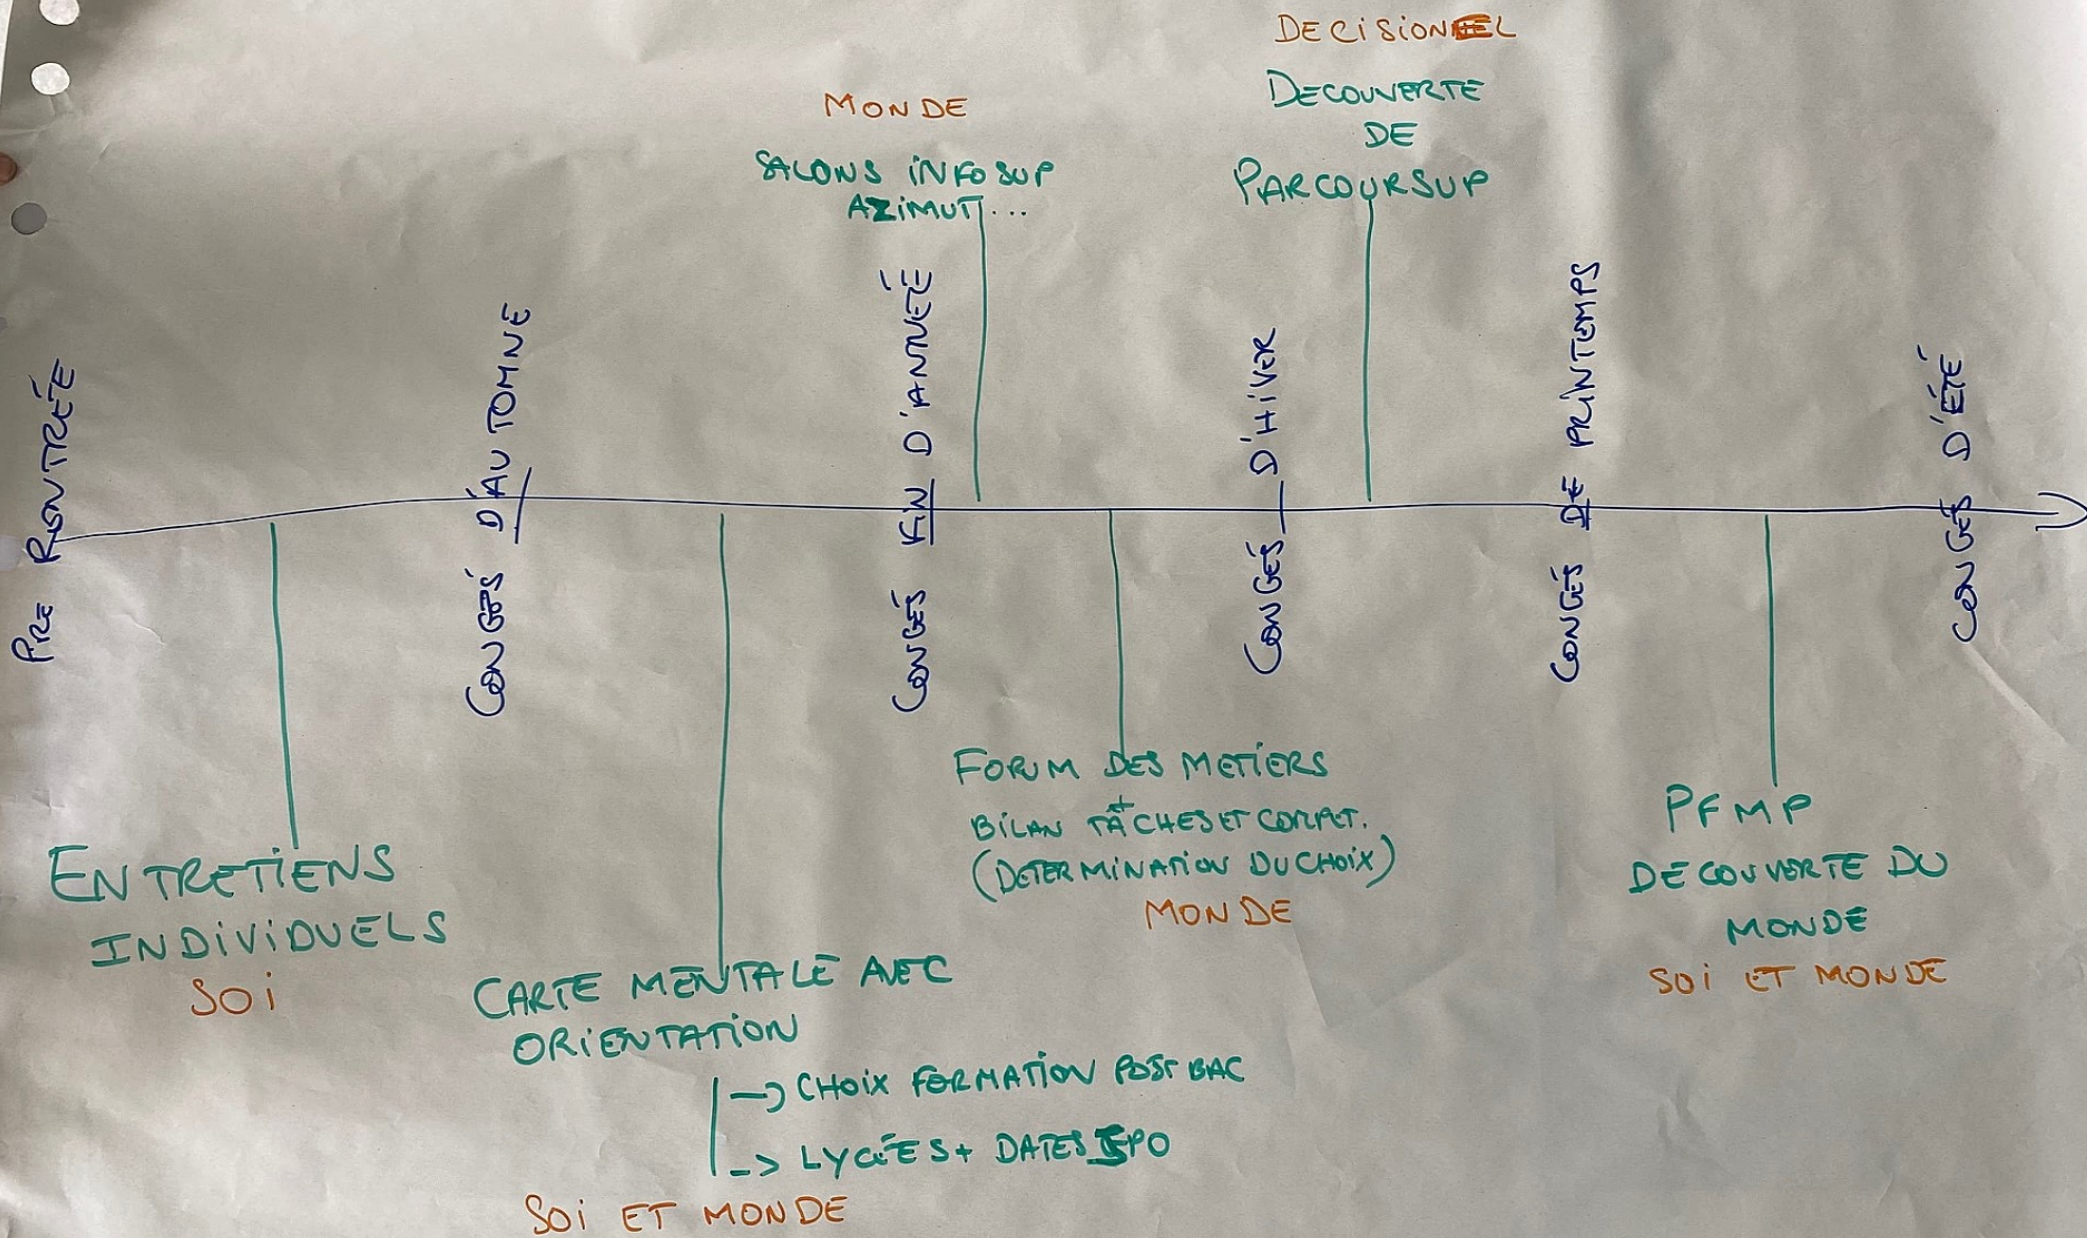 DECISIONNEL
DECOUVERTE
DE
PARCOURSUP
MONDE
SALONS INFOSUP
AZIMUT...
PRE RENTRÉE
CONGÉS D'AUTOMNE
CONGÉS FIN D'ANNÉE
CONGÉS D'HIVER
CONGÉS DE PRINTEMPS
CONGÉS D'ÉTÉ
ENTRETIENS
INDIVIDUELS
SOI
CARTE MENTALE AVEC
ORIENTATION
-> CHOIX FORMATION POST BAC
-> LYCÉES + DATES JPO
SOI ET MONDE
FORUM DES METIERS
+
BILAN TÂCHES ET COMPET.
(DETERMINATION DU CHOIX)
MONDE
PFMP
DECOUVERTE DU
MONDE
SOI ET MONDE